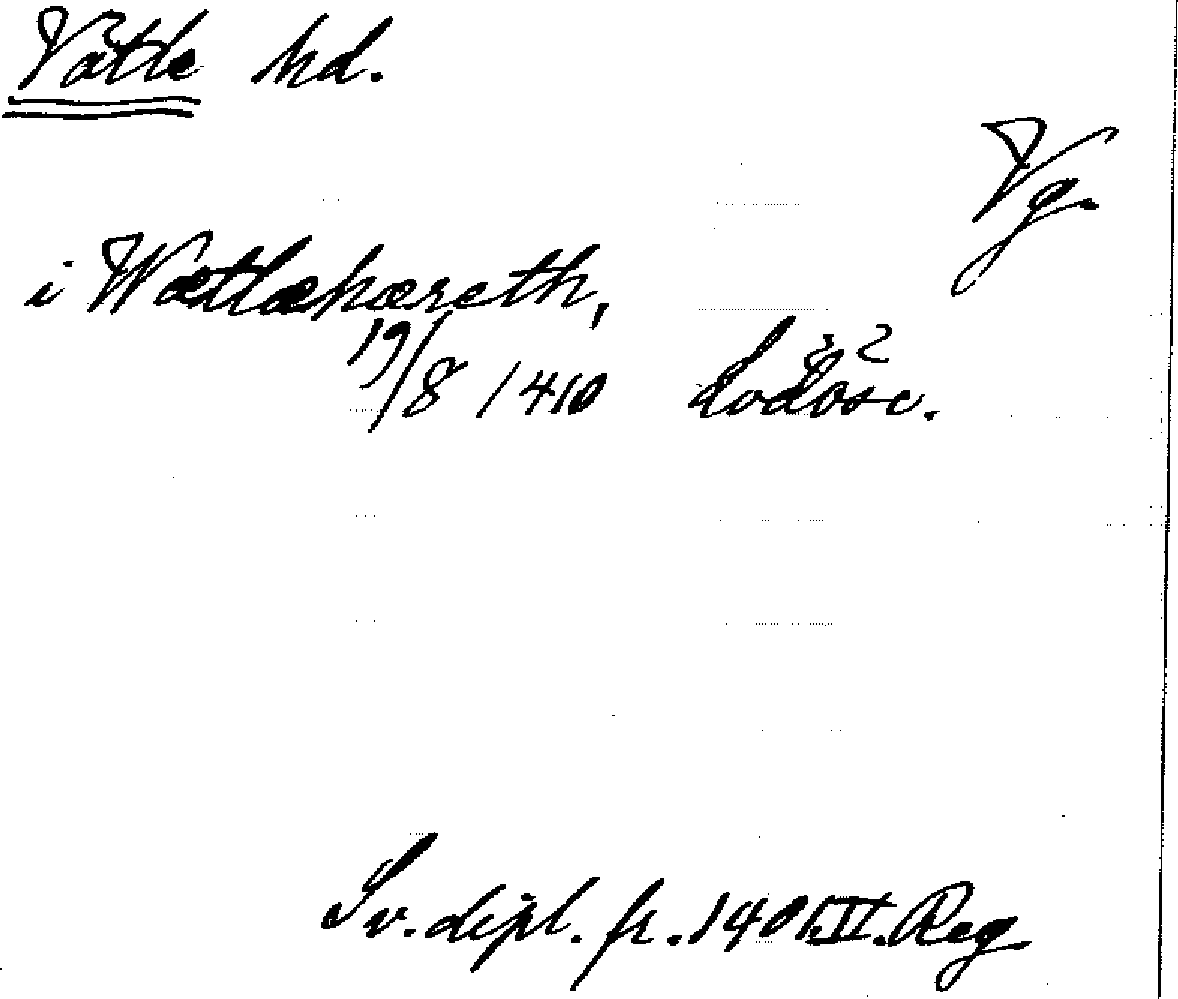 Vätle hd.
Vg.
i Wætlæhæreth,
19/8 1410 Lodose.
Sv. dipl. fr. 1401 II. Reg